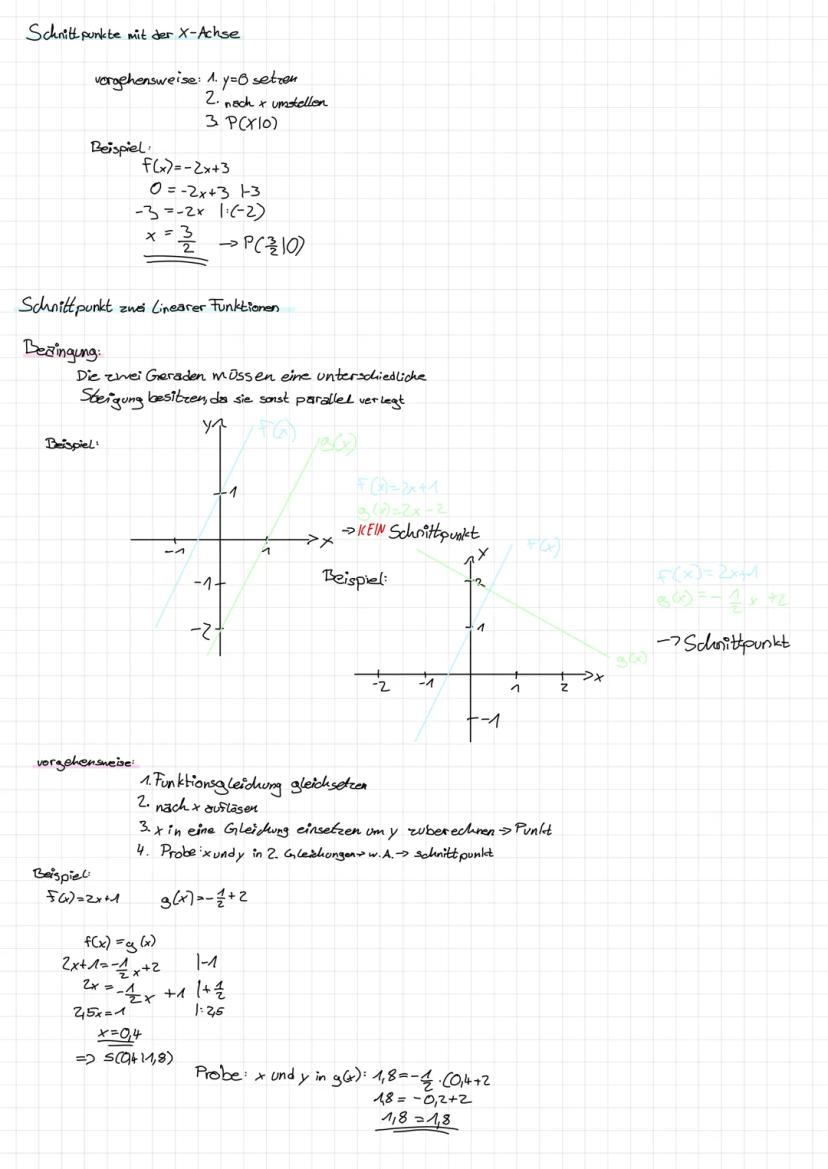 Schnittpunkte mit der X-Achse
vorgehensweise: 1. y=0 setzen
2. nach x umstellen
3. P(X|0)
Beispiel:
f(x)=-2x+3
0=-2x+3 |-3
-3=-2x |:(-2)
x = 3/2 → P(3/2|0)
Schnittpunkt zwei Linearer Funktionen
Bedingung:
Die zwei Geraden müssen eine unterschiedliche
Steigung besitzen, da sie sonst parallel verlegt
Beispiel:
y
f(x)
g(x)
1
-1
1
x
-1
-2
f(x)=2x+1
g(x)=2x-2
→ KEIN Schnittpunkt
Beispiel:
y
f(x)
2
1
g(x)
-2 -1 1 2 x
-1
f(x)=2x+1
g(x)=-1/2 x +2
→ Schnittpunkt
vorgehensweise:
1. Funktionsgleichung gleichsetzen
2. nach x auflösen
3. x in eine Gleichung einsetzen um y zuberechnen → Punkt
4. Probe: x und y in 2. Gleichungen → w.A. → schnittpunkt
Beispiel:
f(x)=2x+1 g(x)=-1/2+2
f(x)=g(x)
2x+1=-1/2x+2 |-1
2x=-1/2x +1 |+1/2
2,5x=1 |:2,5
x=0,4
=> S(0,4|1,8)
Probe: x und y in g(x): 1,8=-1/2·(0,4+2
1,8=-0,2+2
1,8=1,8